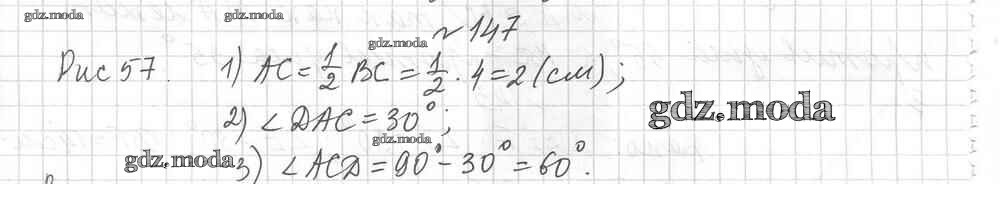 gdz.moda gdz.moda
№ 147
gdz.moda
Рис 57. 1) AC = 1/2 BC = 1/2 · 4 = 2 (см);
gdz.moda
2) ∠DAC = 30°;
gdz.moda
gdz.moda 3) ∠ACD = 90° - 30° = 60°.